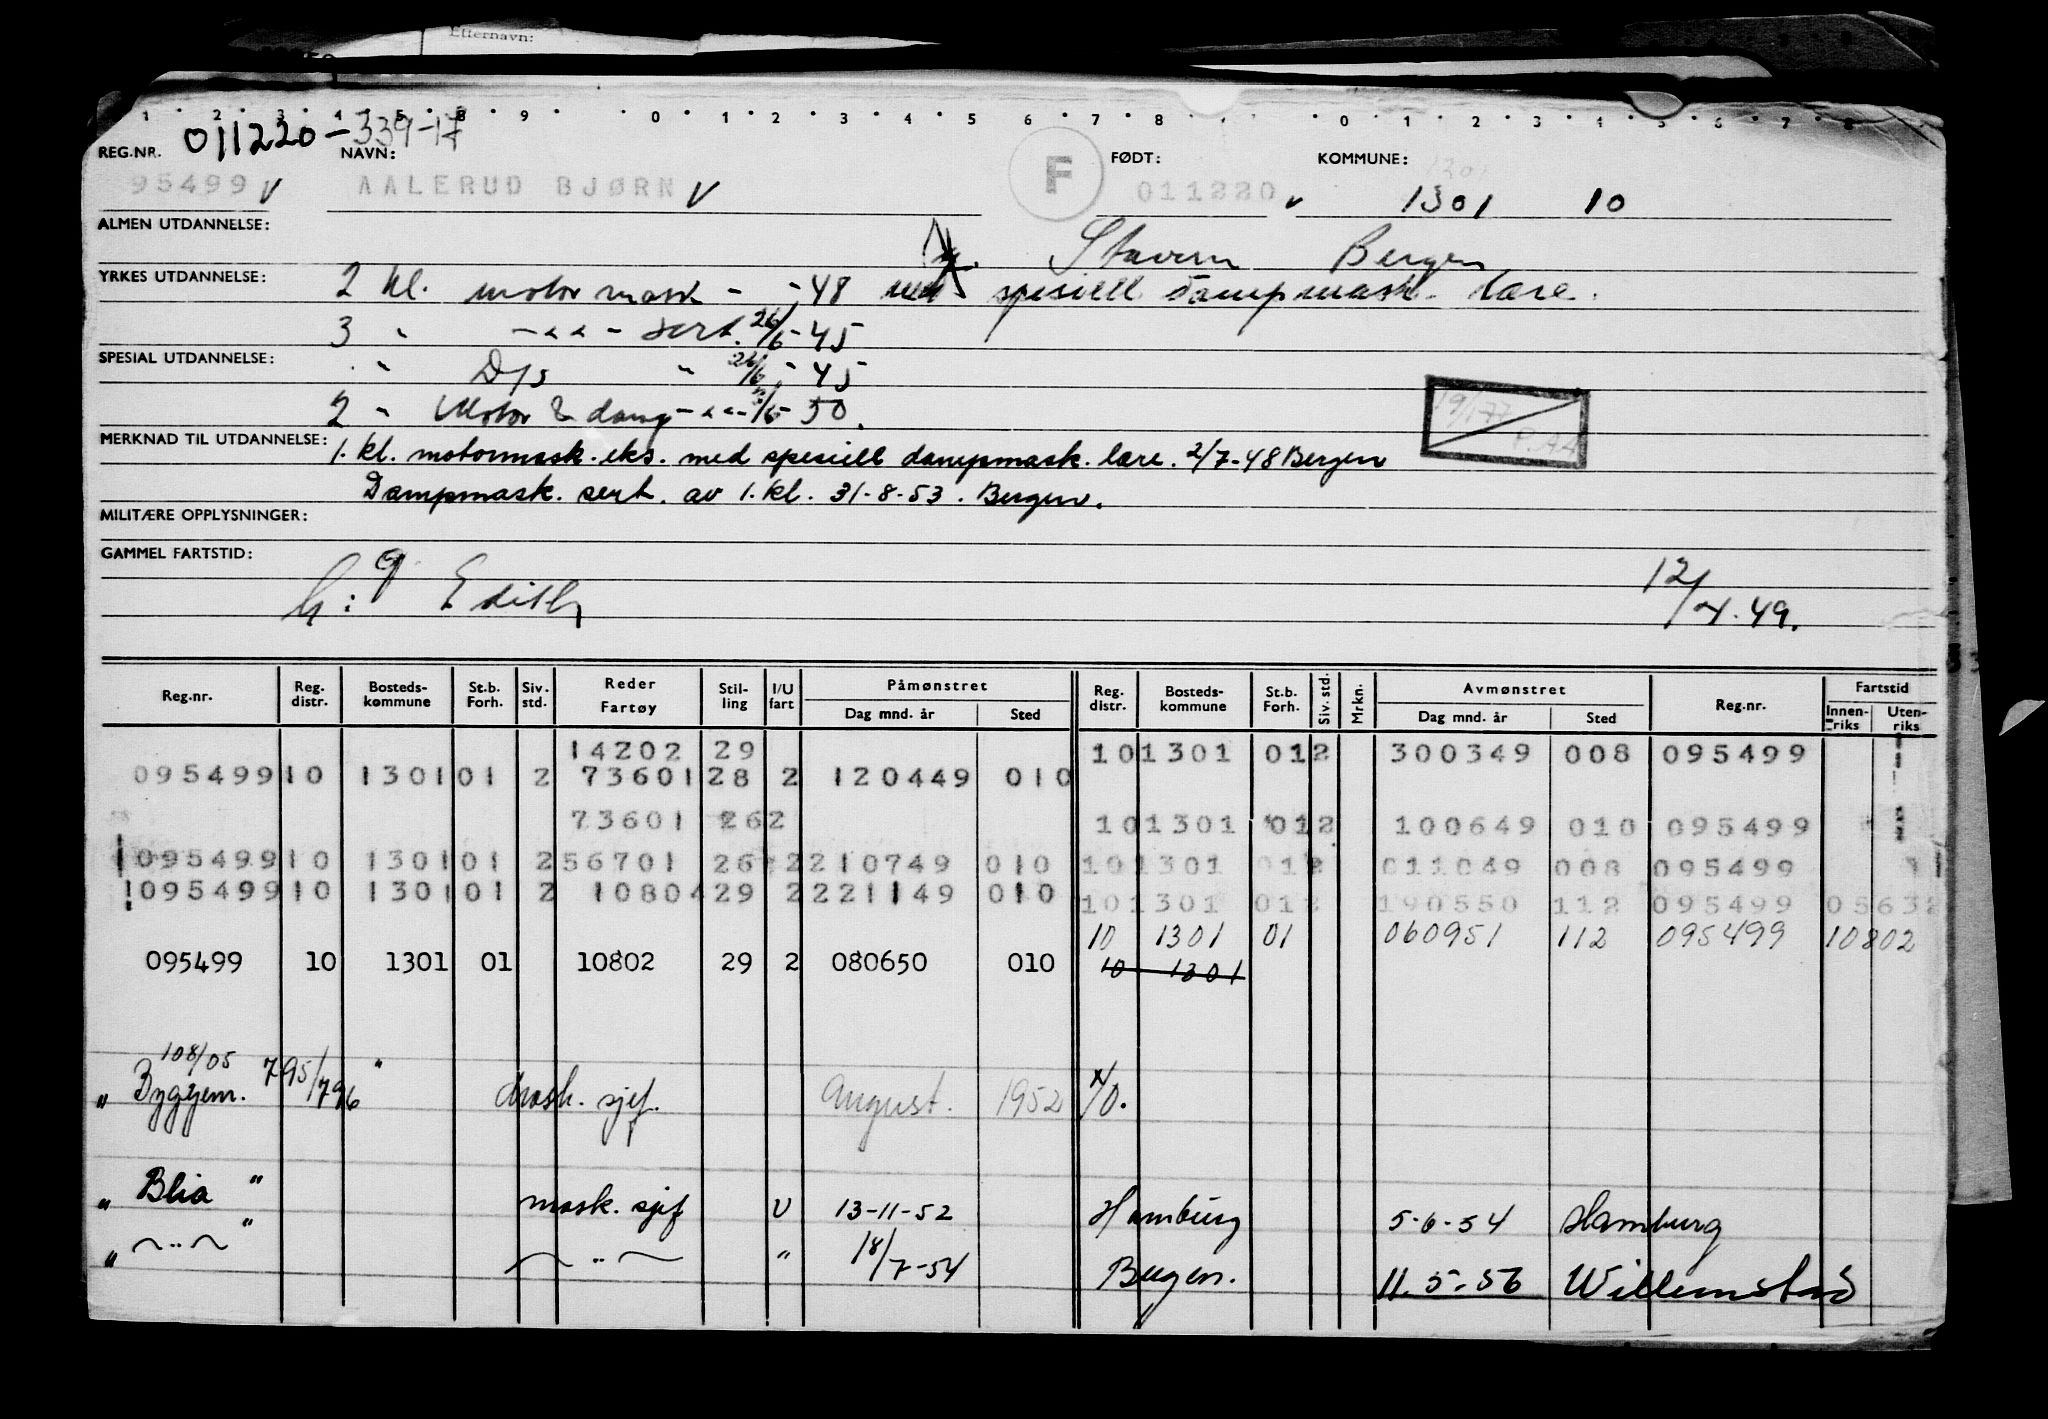 Etternavn:
1 2 3 4 5 8 9 0 1 2 3 4 5 6 7 8 0 1 2 3 4 5 6 7 8
REG.NR. 011220-339-17 NAVN: FØDT: KOMMUNE:
95499 V AALERUD BJØRN V F 011220 v 1301 10
ALMEN UTDANNELSE:
Stavern Bergen
YRKES UTDANNELSE: 2 kl. motor mask - - 48 med spesiell dampmask. lære.
3 " - « « - sert. 26/6 - 45
SPESIAL UTDANNELSE: " D/s " 26/6 - 45
2 " Motor & damp - « « - /6 - 50.
19/177
MERKNAD TIL UTDANNELSE: 1. kl. motormask. eks. med spesiell dampmask. lære. 2/7-48 Bergen
Dampmask. sert. av 1. kl. 31-8-53. Bergen.
MILITÆRE OPPLYSNINGER:
GAMMEL FARTSTID:
Edith 12/4.49.
Reg.nr. Reg. distr. Bosteds-kommune St.b. Forh. Siv. std. Reder Fartøy Stil-ling I/U fart Påmønstret Dag mnd. år Sted Reg. distr. Bosteds-kommune St.b. Forh. Siv. std. Mrkn. Avmønstret Dag mnd. år Sted Reg.nr. Fartstid Innen-riks Uten-riks
14202 29 10 1301 01 2 300349 008 095499
095499 10 1301 01 2 73601 28 2 120449 010
73601 26 2 10 1301 01 2 100649 010 095499
095499 10 1301 01 2 56701 26 2 210749 010 10 1301 01 2 011049 008 095499
095499 10 1301 01 2 10804 29 2 221149 010 10 1301 01 2 190550 112 095499 05632
10 1301 01 060951 112 095499 10802
095499 10 1301 01 10802 29 2 080650 010 10 1301
108/05
" Byggenr. 795/796 " Mask. sjef. August. 1952 /0.
" Blia " mask. sjef U 13-11-52 Hamburg 5-6-54 Hamburg
" ~ " ~ " ~ " ~ " 18/7-54 Bergen. 11.5-56 Willemstad